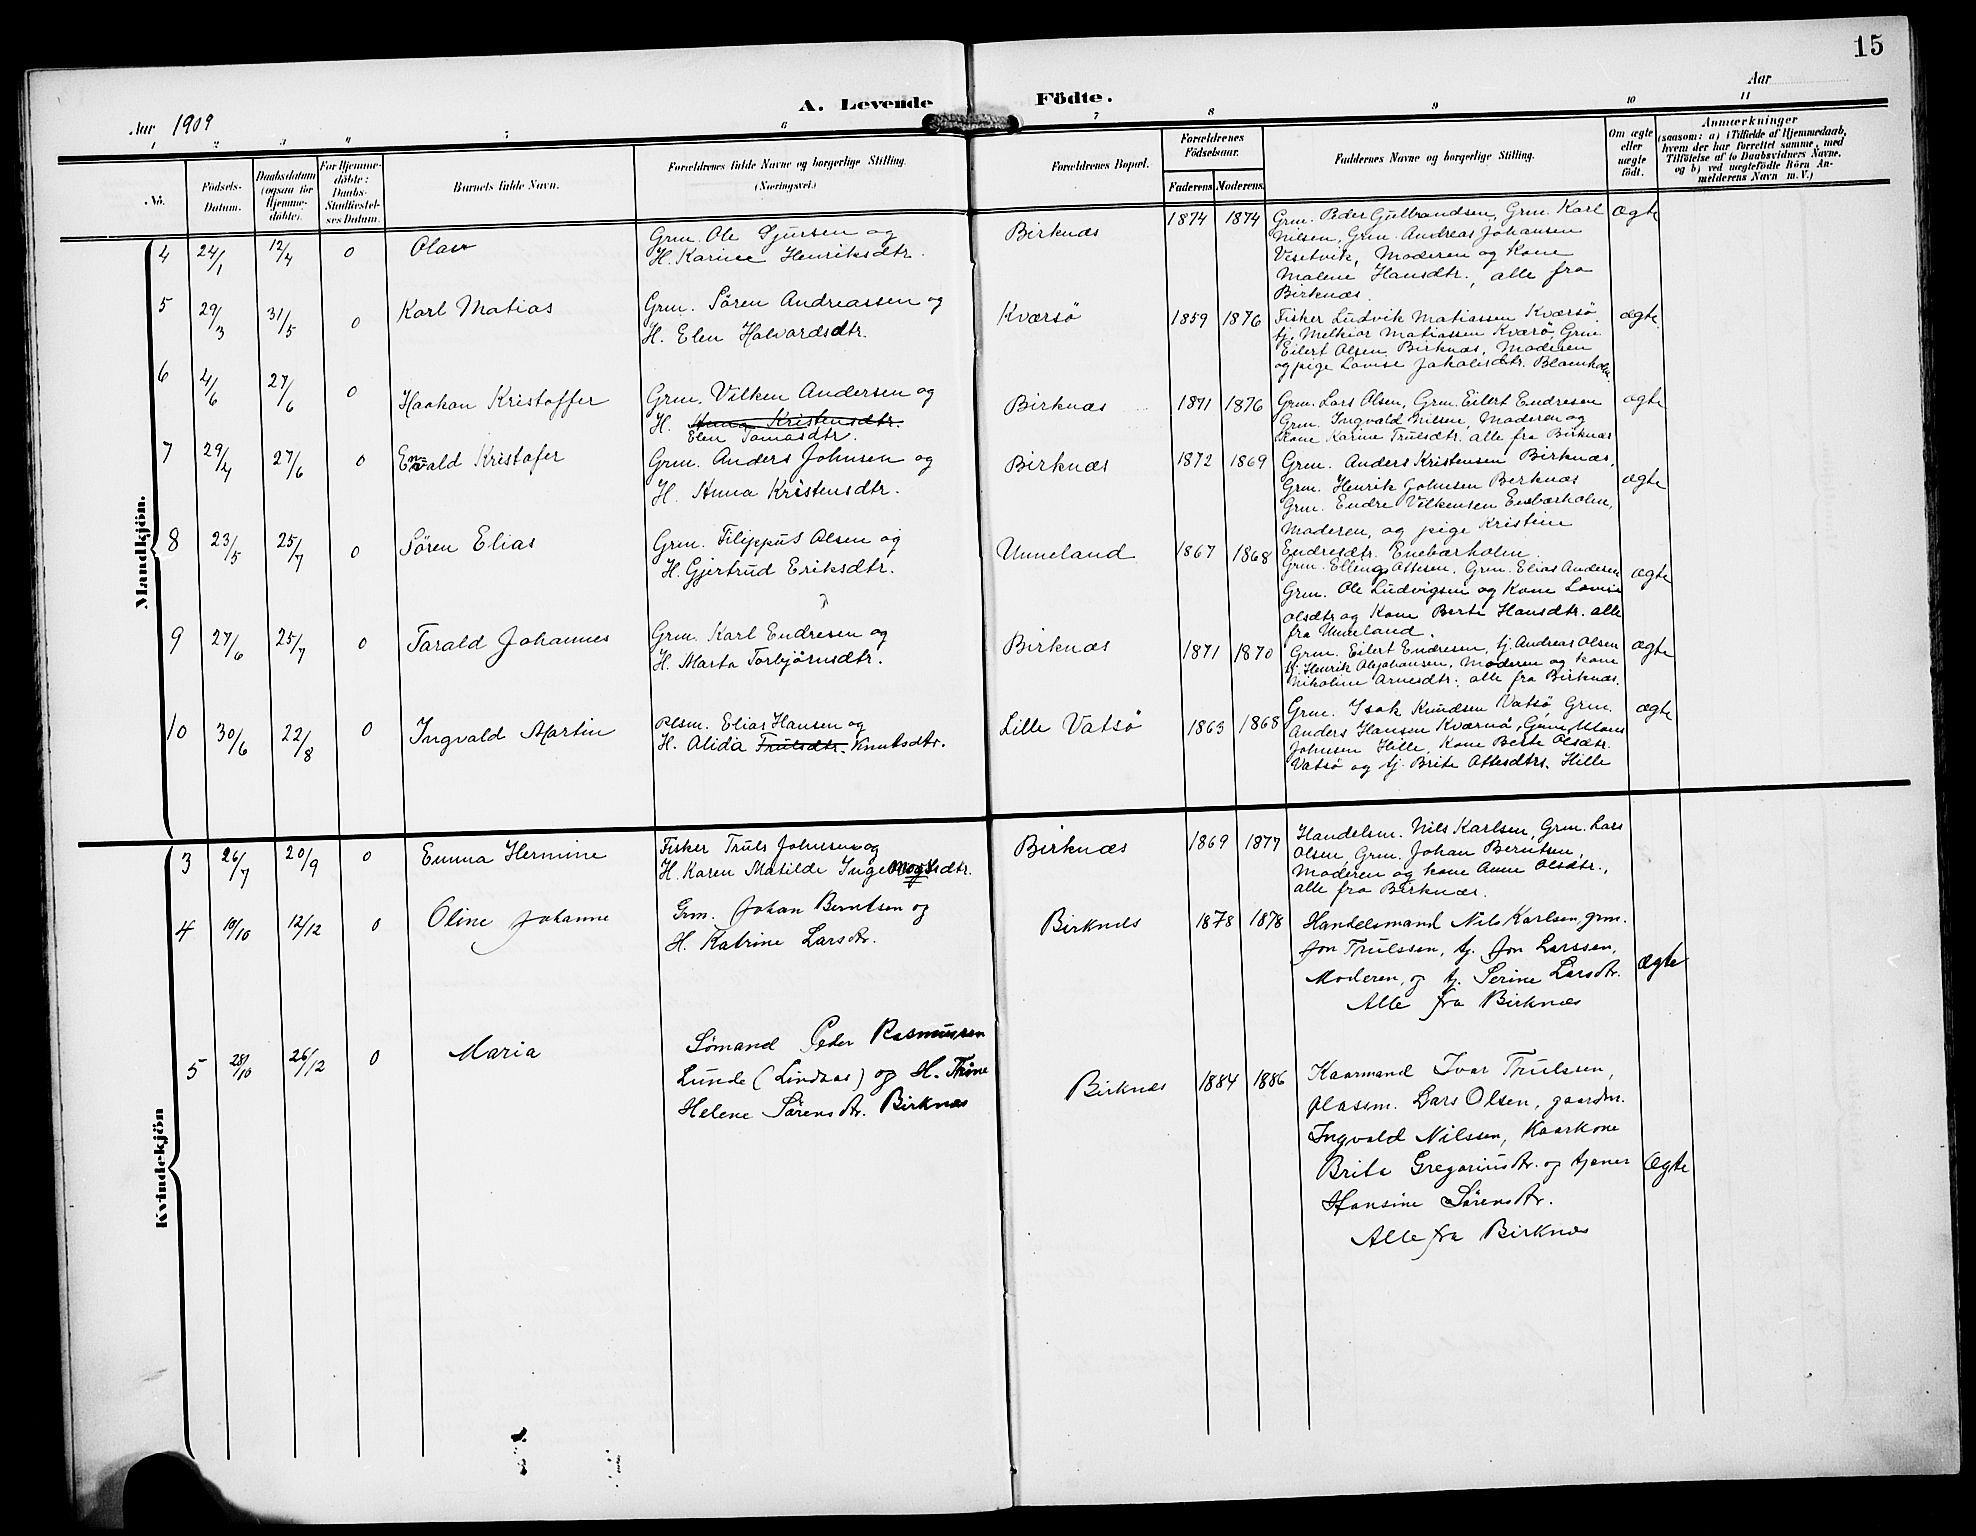 15
A. Levende Födte.
Aar 1909
Aar
1 2 3 4 5 6 7 8 9 10 11
No.
Födsels-Datum.
Daabsdatum (ogsaa for Hjemme-døbte).
For Hjemme-døbte: Daabs-Stadfæstel-ses Datum.
Barnets fulde Navn.
Forældrenes fulde Navne og borgerlige Stilling. (Næringsvei.)
Forældrenes Bopæl.
Forældrenes Födselsaar.
Faderens. Moderens.
Faddernes Navne og borgerlige Stilling.
Om ægte eller uægte født.
Anmærkninger
(saasom: a) i Tilfælde af Hjemmedaab, hvem der har forrettet samme, med Tilføielse af to Daabsvidners Navne, og b) ved uægtefødte Börn An-melderens Navn m. V.)
Mandkjön.
4 24/1 12/4 0 Olav
Grm. Ole Sjursen og
H. Karine Henriksdtr.
Birknæs 1874 1874
Grm. Peder Gulbrandsen, Grm. Karl
Nilsen, Grm. Andreas Johansen
Vesetvik, Moderen og Kone
Malene Hansdtr., alle fra
Birknæs.
ægte
5 29/3 31/5 0 Karl Matias
Grm. Søren Andreassen og
H. Elen Halvardsdtr.
Kværsö 1859 1876
Fisker Ludvik Matiassen Kværsö,
tj. Melkior Matiassen Kværö, Grm.
Eilert Olsen Birknæs, Moderen
og pige Lovise Jakobsdtr.
ægte
6 4/6 27/6 0 Haakan Kristoffer
Grm. Vilken Andersen og
H. Anna Kristensdtr.
Elen Tomasdtr.
Birknæs 1871 1876
Grm. Lars Olsen, Grm. Eilert Endresen
Grm. Ingvald Nilsen, Moderen og
Kone Karine Trulsdtr. alle fra Birknæs
ægte
7 29/4 27/6 0 Envald Kristofer
Grm. Anders Johnsen og
H. Anna Kristensdtr.
Birknæs 1872 1869
Grm. Anders Kristensen Birknæs,
Grm. Henrik Johnsen Birknæs
Grm. Endre Vilkensen Enebærholm,
Moderen, og pige Kristine
Endresdtr. Enebærholm.
ægte
8 23/5 25/7 0 Søren Elias
Grm. Filippus Olsen og
H. Gjertrud Eriksdtr.
Unneland 1867 1868
Grm. Elling Ottesen, Grm. Elias Andersen
Grm. Ole Ludvigsen og Kone Lovise
Olsdtr og Kone Berte Hansdtr. alle
fra Unneland.
ægte
9 27/6 25/7 0 Tarald Johannes
Grm. Karl Endresen og
H. Marta Torbjørnsdtr.
Birknæs 1871 1870
Grm. Eilert Endresen, tj. Andreas Olsen
tj. Henrik Johansen, Moderen og kone
Nikoline Arnesdtr. alle fra Birknæs.
ægte
10 30/6 22/8 0 Ingvald Martin
Plsm. Elias Hansen og
H. Alida Trulsdtr. Knutsdtr.
Lille Vatsö 1863 1868
Grm. Isak Knudsen Vatsö, Grm.
Anders Hansen Kværnö, Grm. Mons
Johnsen Hille, Kone Berte Olsdtr.
Vatsö og tj. Brite Ottesdtr. Hille
ægte
Kvindekjön
3 26/7 20/9 0 Emma Hermine
Fisker Truls Johnsen og
H. Karen Matilde Ingebrogtsdtr.
Birknæs 1869 1877
Handelsm. Nils Karlsen, Grm. Lars
Olsen, Grm. Johan Berntsen,
Moderen og kone Anne Olsdtr.,
alle fra Birknæs.
4 10/10 12/12 0 Oline Johanne
Grm. Johan Berntsen og
H. Katrine Larsdtr.
Birknes 1878 1878
Handelsmand Nils Karlsen, grm.
Jon Trulssen, tj. Jon Larssen,
Moderen, og tj. Serine Larsdtr.
Alle fra Birknæs
ægte
5 28/10 26/12 0 Maria
Sømand Peder Rasmussen
Lunde (Lindaas) og H. Trine
Helene Sørensdtr. Birknæs
Birknæs 1884 1886
Kaarmand Ivar Trulssen,
plassm. Lars Olsen, gaardm.
Ingvald Nilssen, Kaarkone
Brita Gregoriusdtr. og tjener
Hansine Sørensdtr.
Alle fra Birknæs
Ægte